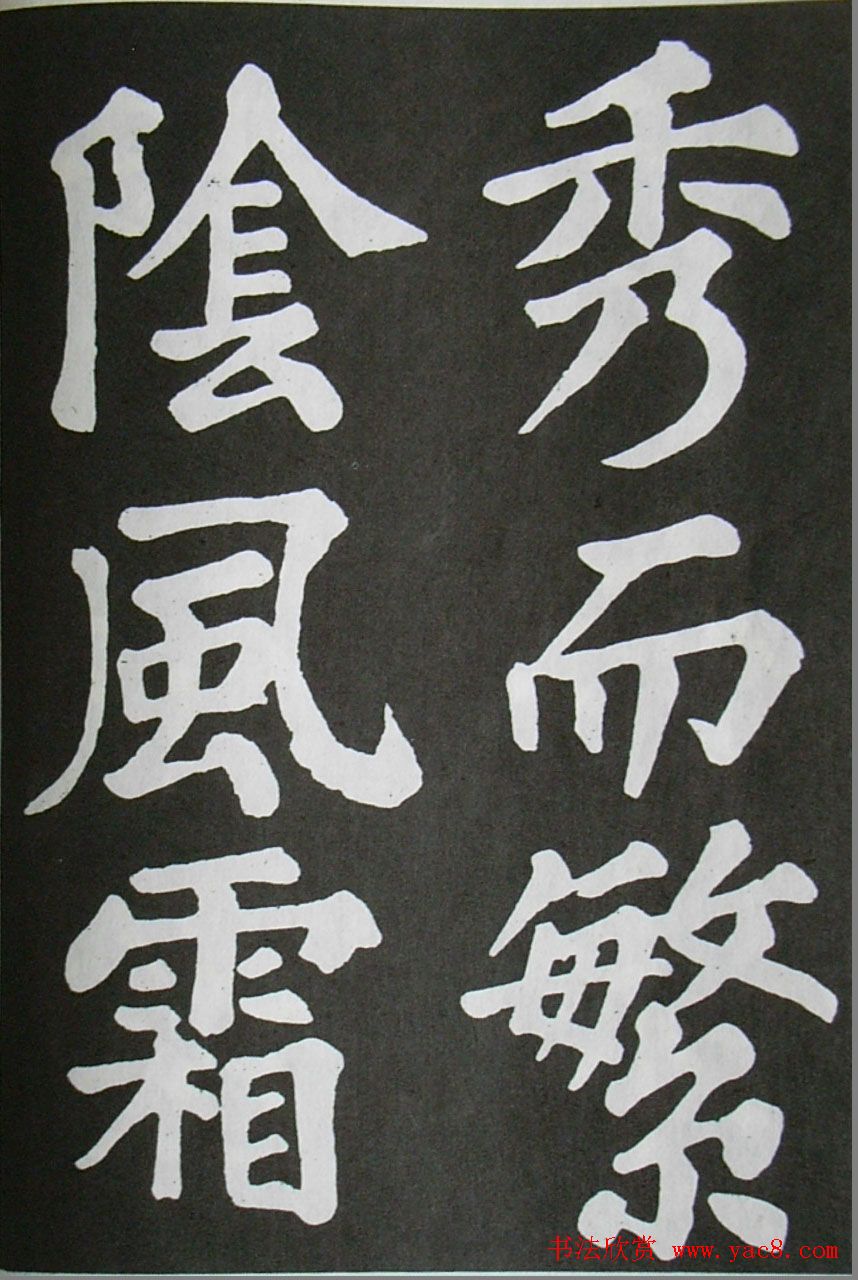 秀而繁
陰風霜
书法欣赏 www.yac8.com